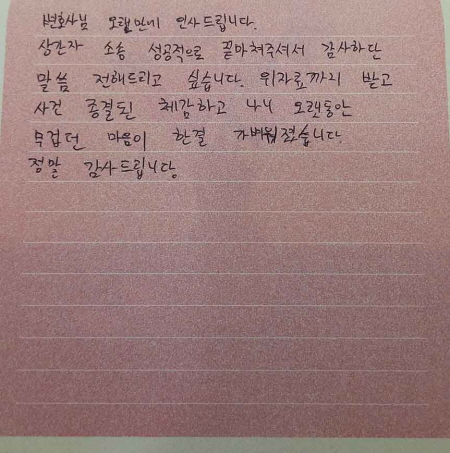 변호사님 오랜만에 인사드립니다.
상간자 소송 성공적으로 끝마쳐주셔서 감사하단
말씀 전해드리고 싶습니다. 위자료까지 받고
사건 종결된 체감하고 나니 오랫동안
무겁던 마음이 한결 가벼워졌습니다.
정말 감사드립니다.